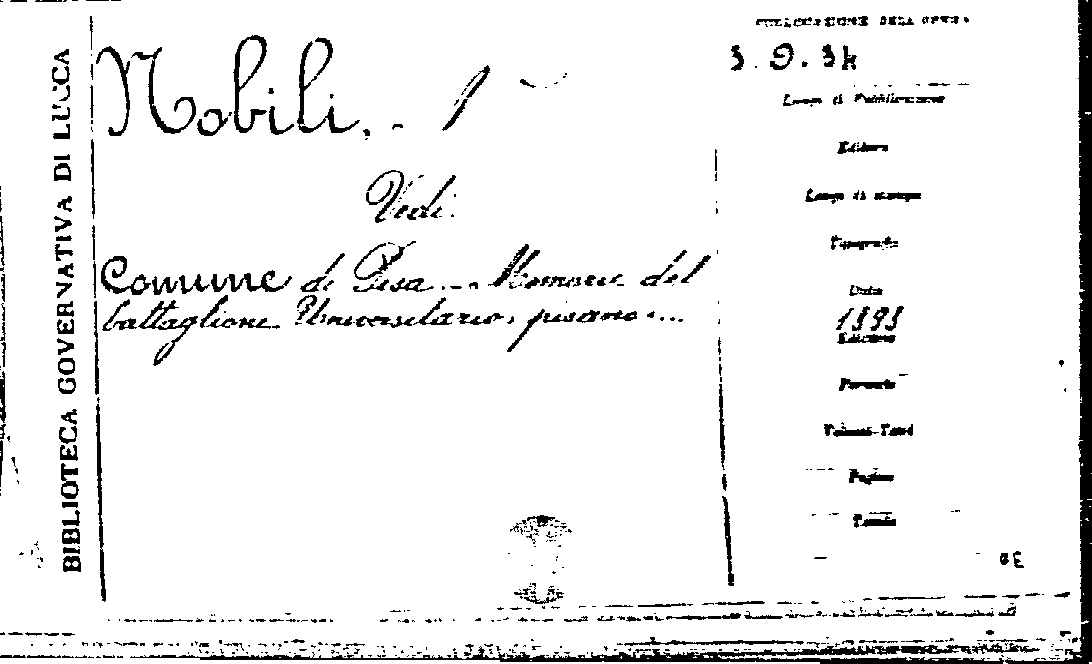 BIBLIOTECA GOVERNATIVA DI LUCCA
Nobili.
Vedi.
Comune di Pisa - Memorie del
battaglione Universitario, pisano ....
COLLOCAZIONE DELL'OPERA
3. 9. 34
Luogo di Pubblicazione
Editore
Luogo di stampa
Tipografo
Data
1898
Edizione
Formato
Volumi-Tomi
Pagine
Tavole